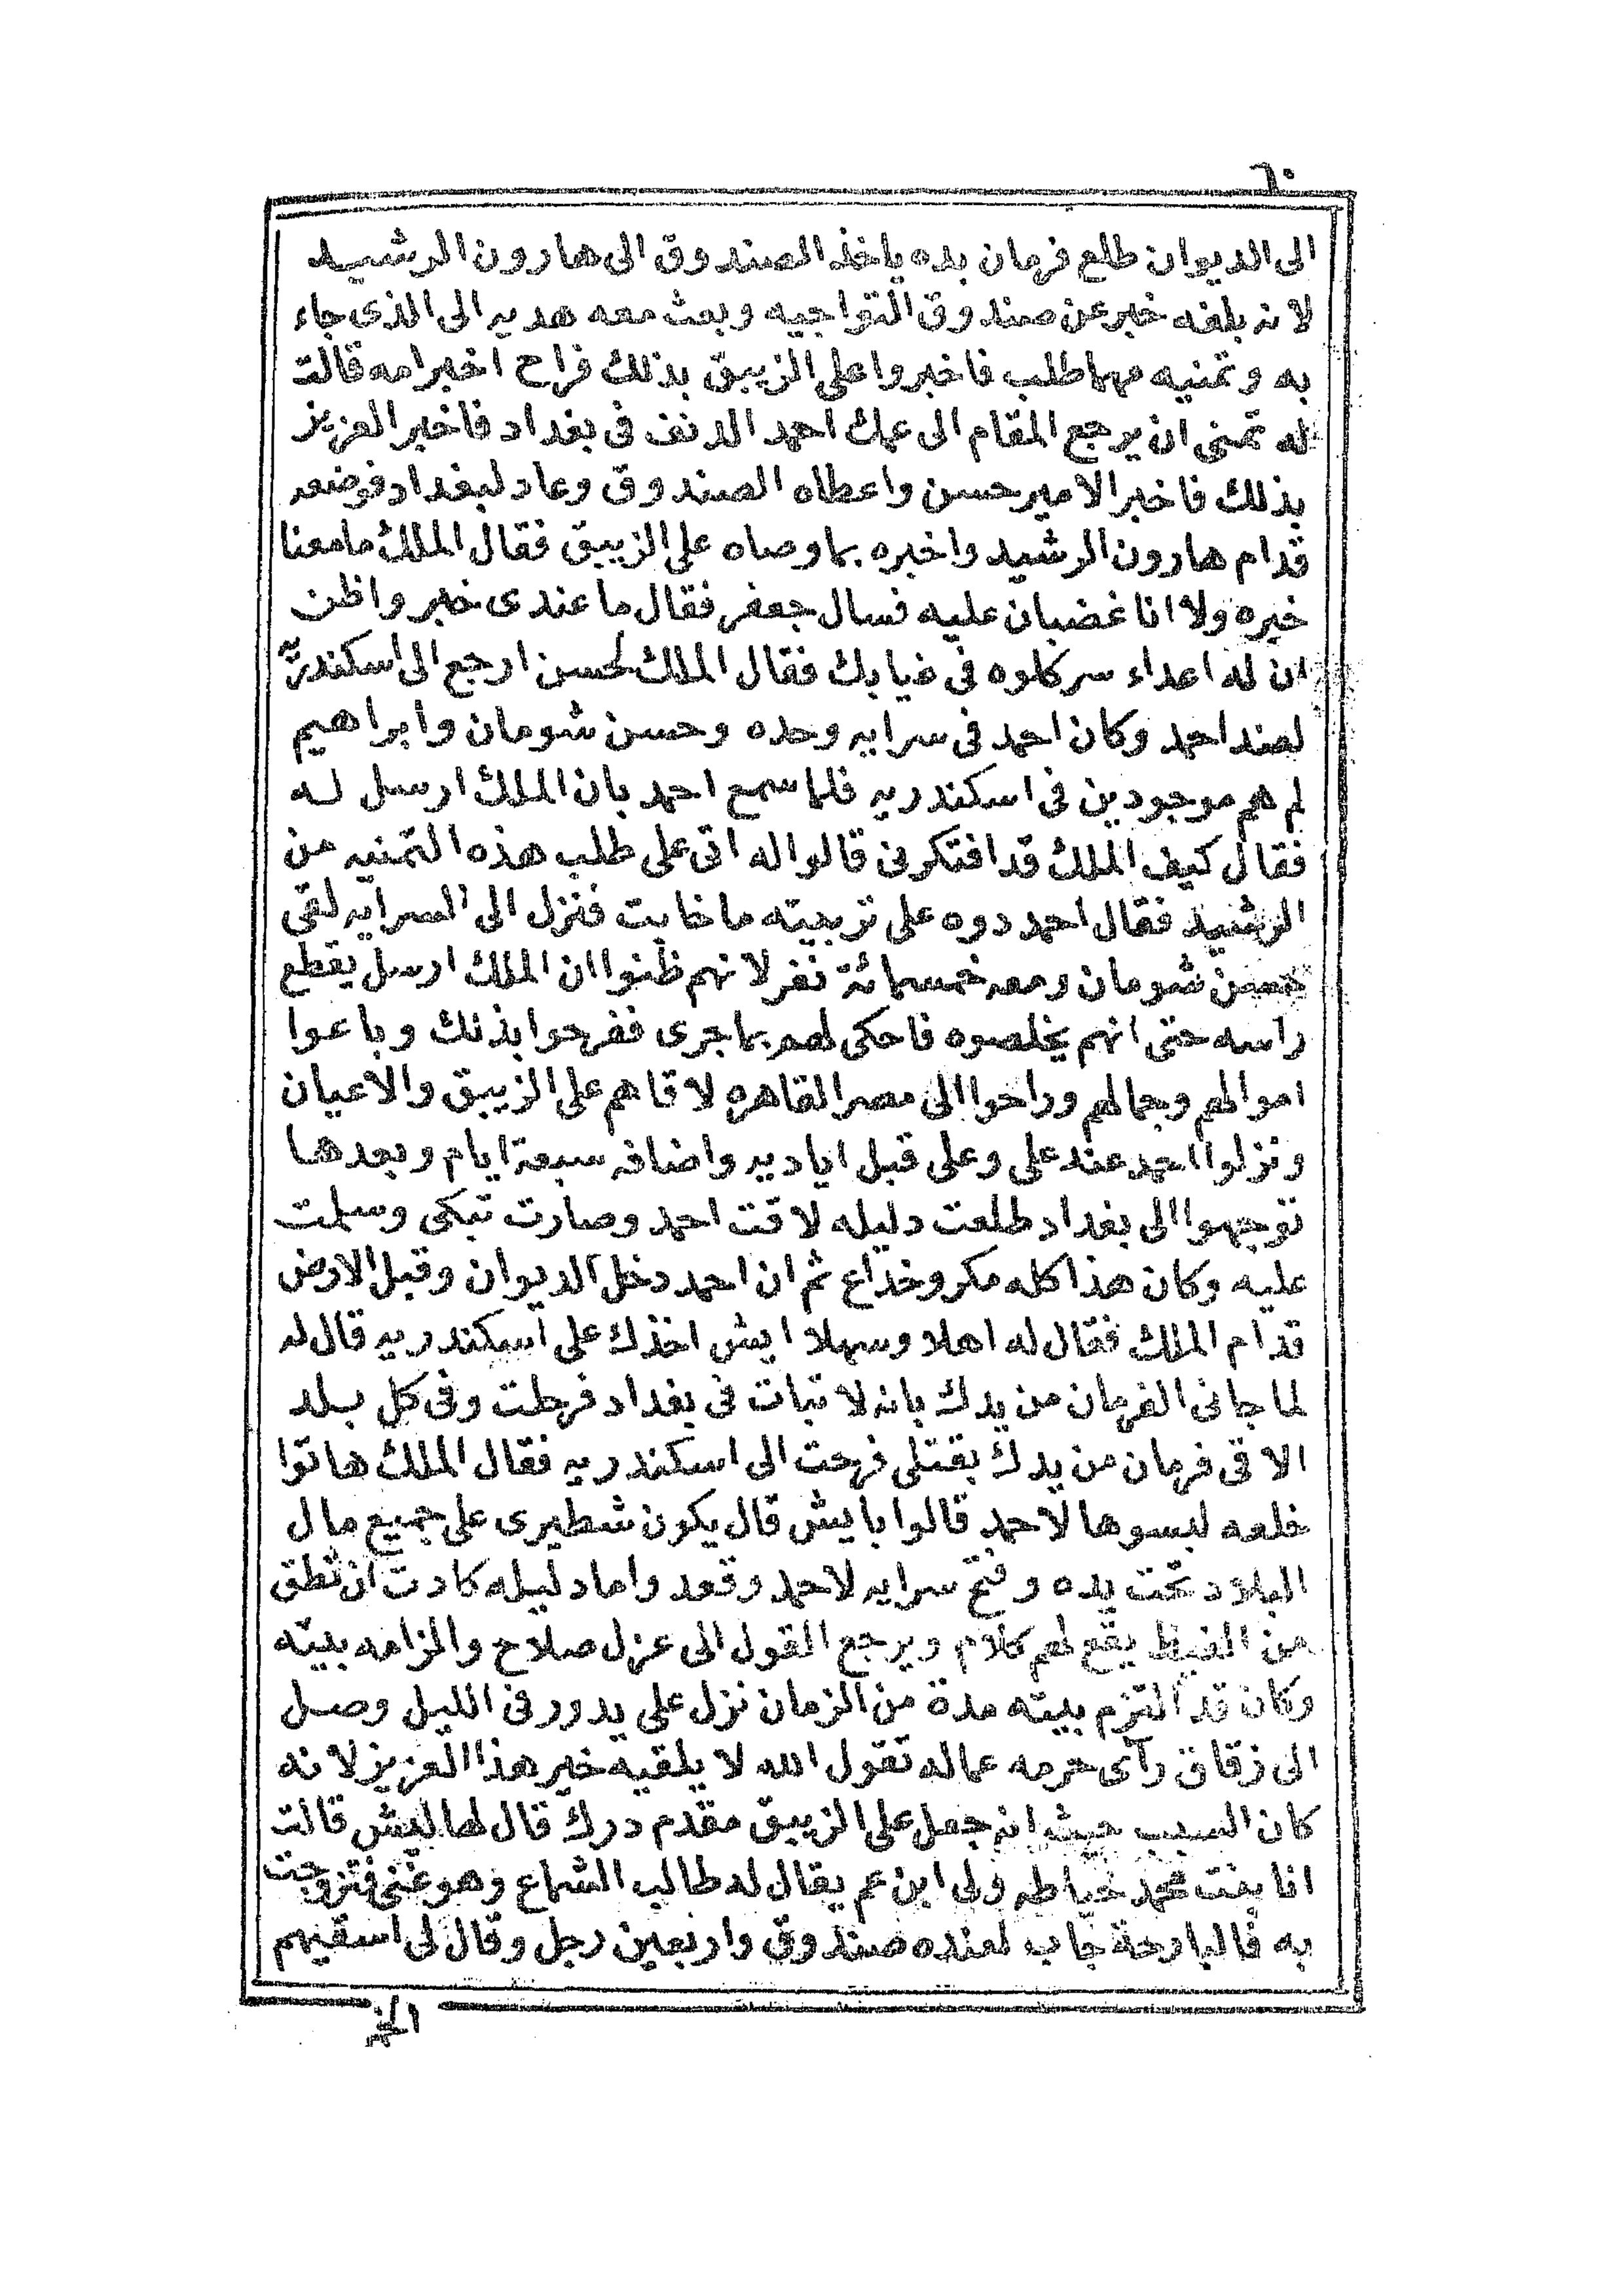 ٦٠
الى الديوان طلع فرمان بده ياخذ الصندوق الى هارون الرشيد
لانه بلغه خبر عن صندوق التواجيه وبعث معه هديه الى الذى جاء
به وتمنيه مهما طلب فاخبروا على الزيبق بذلك فراح اخبر امه قالت
له تمنى ان يرجع المقام الى عمك احمد الدنف فى بغداد فاخبر العزيز
بذلك فاخبر الامير حسن واعطاه الصندوق وعاد لبغداد فوضعه
قدام هارون الرشيد واخبره بما وصاه على الزيبق فقال الملك ما معنا
خبره ولا انا غضبان عليه فسال جعفر فقال ما عندى خبر واظن
ان له اعداء سركلوه فى غيابك فقال الملك لحسن ارجع الى اسكندريه
لعند احمد وكان احمد فى سرايه وحده وحسن شومان وابراهيم
لم هم موجودين فى اسكندريه فلما سمع احمد بان الملك ارسل له
فقال كيف الملك قد افتكرنى قالوا له اتى على طلب هذه التمنيه من
الرشيد فقال احمد دوه على تربيته ما خابت فنزل الى السرايه لقى
حسن شومان ومعه خمسمائة نفر لانهم ظنوا ان الملك ارسل يقطع
راسه حتى انهم يخلصوه فاحكى لهم بما جرى ففرحوا بذلك وباعوا
اموالهم وجمالهم وراحوا الى مصر القاهره لاقاهم على الزيبق والاعيان
ونزلوا احمد عند على وعلى قبل اياديه واضافه سبعة ايام وبعدها
توجهوا الى بغداد طلعت دليله لاقت احمد وصارت تبكى وسلمت
عليه وكان هذا كله مكر وخداع ثم ان احمد دخل الديوان وقبل الارض
قدام الملك فقال له اهلا وسهلا ايش اخذك على اسكندريه قال له
لما جانى الفرمان من يدك بانه لا تبات فى بغداد فرحلت وفى كل بلد
الاقى فرمان من يدك بقتلى فرحت الى اسكندريه فقال الملك هاتوا
خلعه لبسوها لاحمد قالوا بايش قال يكون شطيرى على جميع مال
البلاد تحت يده وفتح سرايه لاحمد وقعد واما دليله كادت ان تطق
من الغيظ يقع لهم كلام ويرجع القول الى عزل صلاح والزامه بيته
وكان قد التزم بيته مدة من الزمان نزل على يدور فى الليل وصل
الى زقاق رآى حرمه عماله تقول الله لا يلقيه خير هذا العزيز لانه
كان السبب حيث انه جعل على الزيبق مقدم درك قال لها ليش قالت
انا بنت محمد خياطه ولى ابن عم يقال له طالب الشماع وهو غنى فتزوجت
به فالبارحة جاب لعنده صندوق واربعين رجل وقال لى اسقيهم